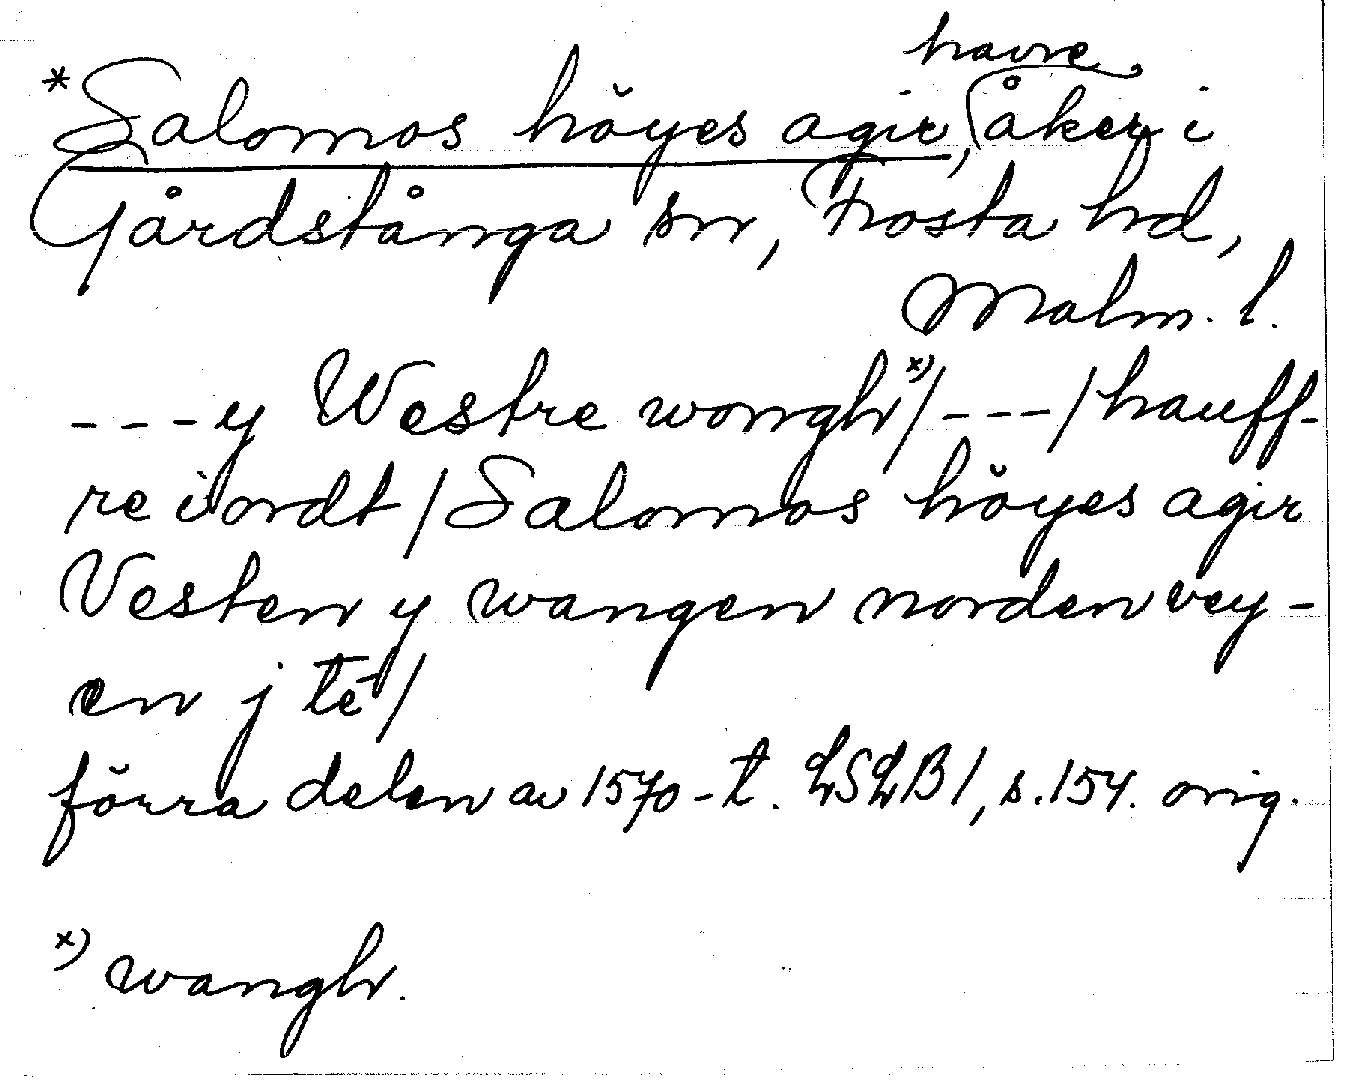 havre
*Salomos höyes agir, åker i
Gårdstånga sn, Frosta hd,
Malm. l.
---y Westre wongh x)/---/hauff-
re iordt/Salomos höyes agir
Vesten y wangen norden vey-
en j té/
förra delen av 1570-t. LSLB1, s.154. orig.
x) wangh.